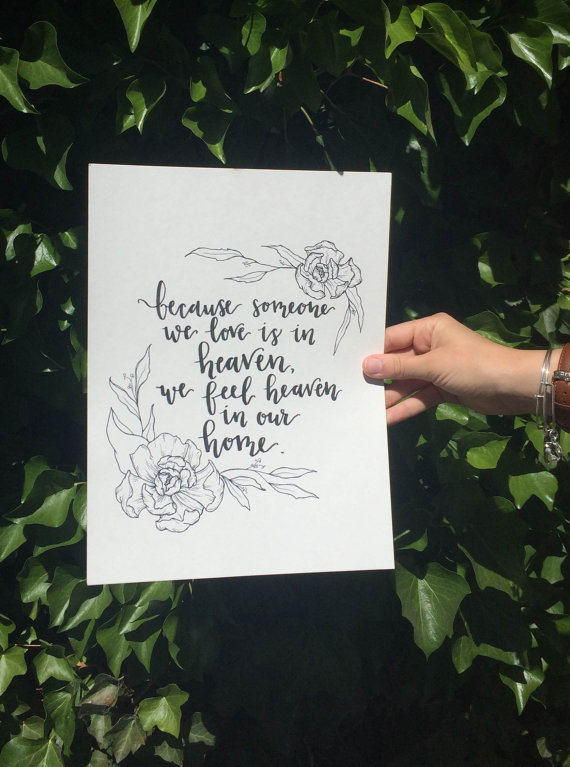 because someone
we love is in
heaven,
we feel heaven
in our
home.